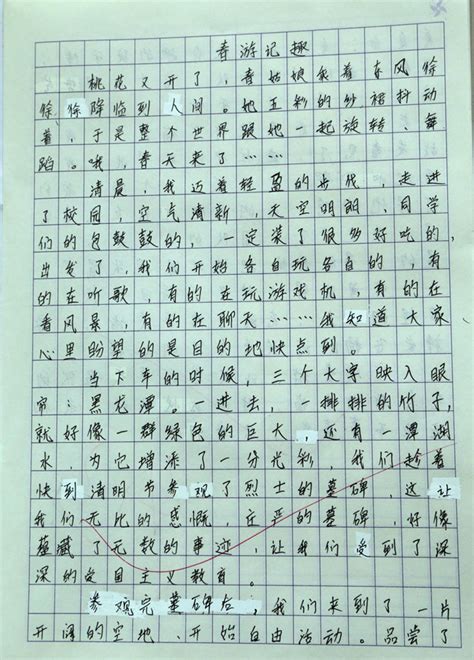 春游记趣
桃花又开了，春姑娘乘着东风徐
徐徐降临到人间。她五彩的纱裙抖动
着，于是整个世界跟她一起旋转、舞
蹈。哦，春天来了……
清晨，我迈着轻盈的步伐，走进
了校园，空气清新，天空明朗，同学
们的包鼓鼓的，一定装了很多好吃的，
出发了，我们开始各自玩各自的，有
的在听歌，有的在玩游戏机，有的在
看风景，有的在聊天……我知道大家
心里盼望的是目的地快点到。
当下车的时候，三个大字映入眼
帘：黑龙潭。一进去，一排排的竹子，
就好像一群绿色的巨大，还有一潭湖
水，为它增添了一分光彩，我们趁着
快到清明节参观了烈士的墓碑，这让
我们无比的感慨，庄严的墓碑，好像
蕴藏了无数的事迹，让我们受到了深
深的爱国主义教育。
参观完墓碑后，我们来到了一片
开阔的空地，开始自由活动。品尝了